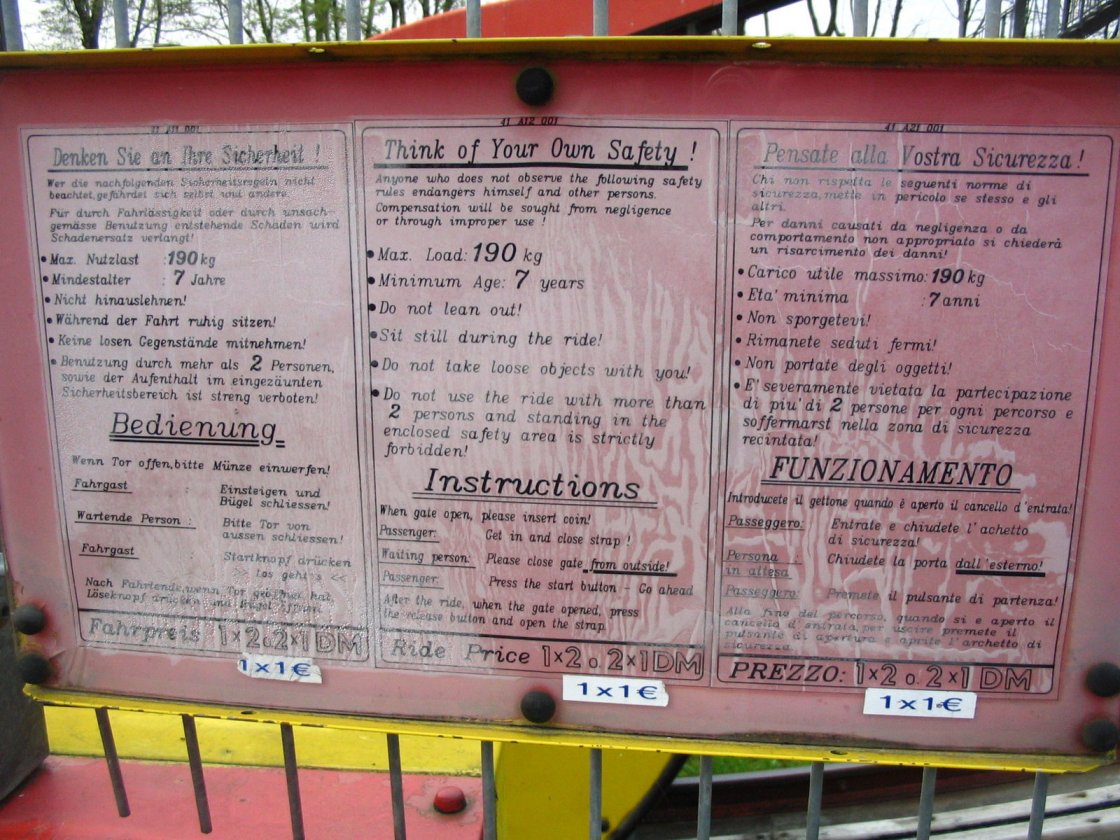 11 A11 001
Denken Sie an Ihre Sicherheit !
Wer die nachfolgenden Sicherheitsregeln nicht
beachtet, gefährdet sich selbst und andere.
Für durch Fahrlässigkeit oder durch unsach-
gemässe Benutzung entstehende Schaden wird
Schadenersatz verlangt!
• Max. Nutzlast : 190 kg
• Mindestalter : 7 Jahre
• Nicht hinauslehnen!
• Während der Fahrt ruhig sitzen!
• Keine losen Gegenstände mitnehmen!
• Benutzung durch mehr als 2 Personen,
sowie der Aufenthalt im eingezäunten
Sicherheitsbereich ist streng verboten!
Bedienung
Wenn Tor offen, bitte Münze einwerfen!
Fahrgast : Einsteigen und
Bügel schliessen!
Wartende Person : Bitte Tor von
aussen schliessen!
Fahrgast : Startknopf drücken
los geht's <<
Nach Fahrtende, wenn Tor geöffnet hat,
Löseknopf drücken und Bügel öffnen
Fahrpreis 1x2 o. 2x1 DM
1x1€
41 A12 001
Think of Your Own Safety !
Anyone who does not observe the following safety
rules endangers himself and other persons.
Compensation will be sought from negligence
or through improper use !
• Max. Load: 190 kg
• Minimum Age: 7 years
• Do not lean out!
• Sit still during the ride!
• Do not take loose objects with you!
• Do not use the ride with more than
2 persons and standing in the
enclosed safety area is strictly
forbidden!
Instructions
When gate open, please insert coin!
Passenger: Get in and close strap !
Waiting person: Please close gate from outside!
Passenger: Press the start button - Go ahead
After the ride, when the gate opened, press
the release button and open the strap
Ride Price 1x2 o. 2x1 DM
1x1€
41 A21 001
Pensate alla Vostra Sicurezza!
Chi non rispetta le seguenti norme di
sicurezza, mette in pericolo se stesso e gli
altri.
Per danni causati da negligenza o da
comportamento non appropriato si chiederà
un risarcimento dei danni!
• Carico utile massimo: 190 kg
• Eta' minima : 7 anni
• Non sporgetevi!
• Rimanete seduti fermi!
• Non portate degli oggetti!
• E' severamente vietata la partecipazione
di piu' di 2 persone per ogni percorso e
soffermarst nella zona di sicurezza
recintata!
FUNZIONAMENTO
Introducete il gettone quando è aperto il cancello d'entrata!
Passeggero: Entrate e chiudete l'achetto
di sicurezza!
Persona
in attesa Chiudete la porta dall'esterno!
Passeggero: Premete il pulsante di partenza!
Alla fine del percorso, quando si e aperto il
cancello d'entrata, per uscire premete il
pulsante di apertura e aprite l'archetto di
sicurezza.
PREZZO: 1x2 o. 2x1 DM
1x1€